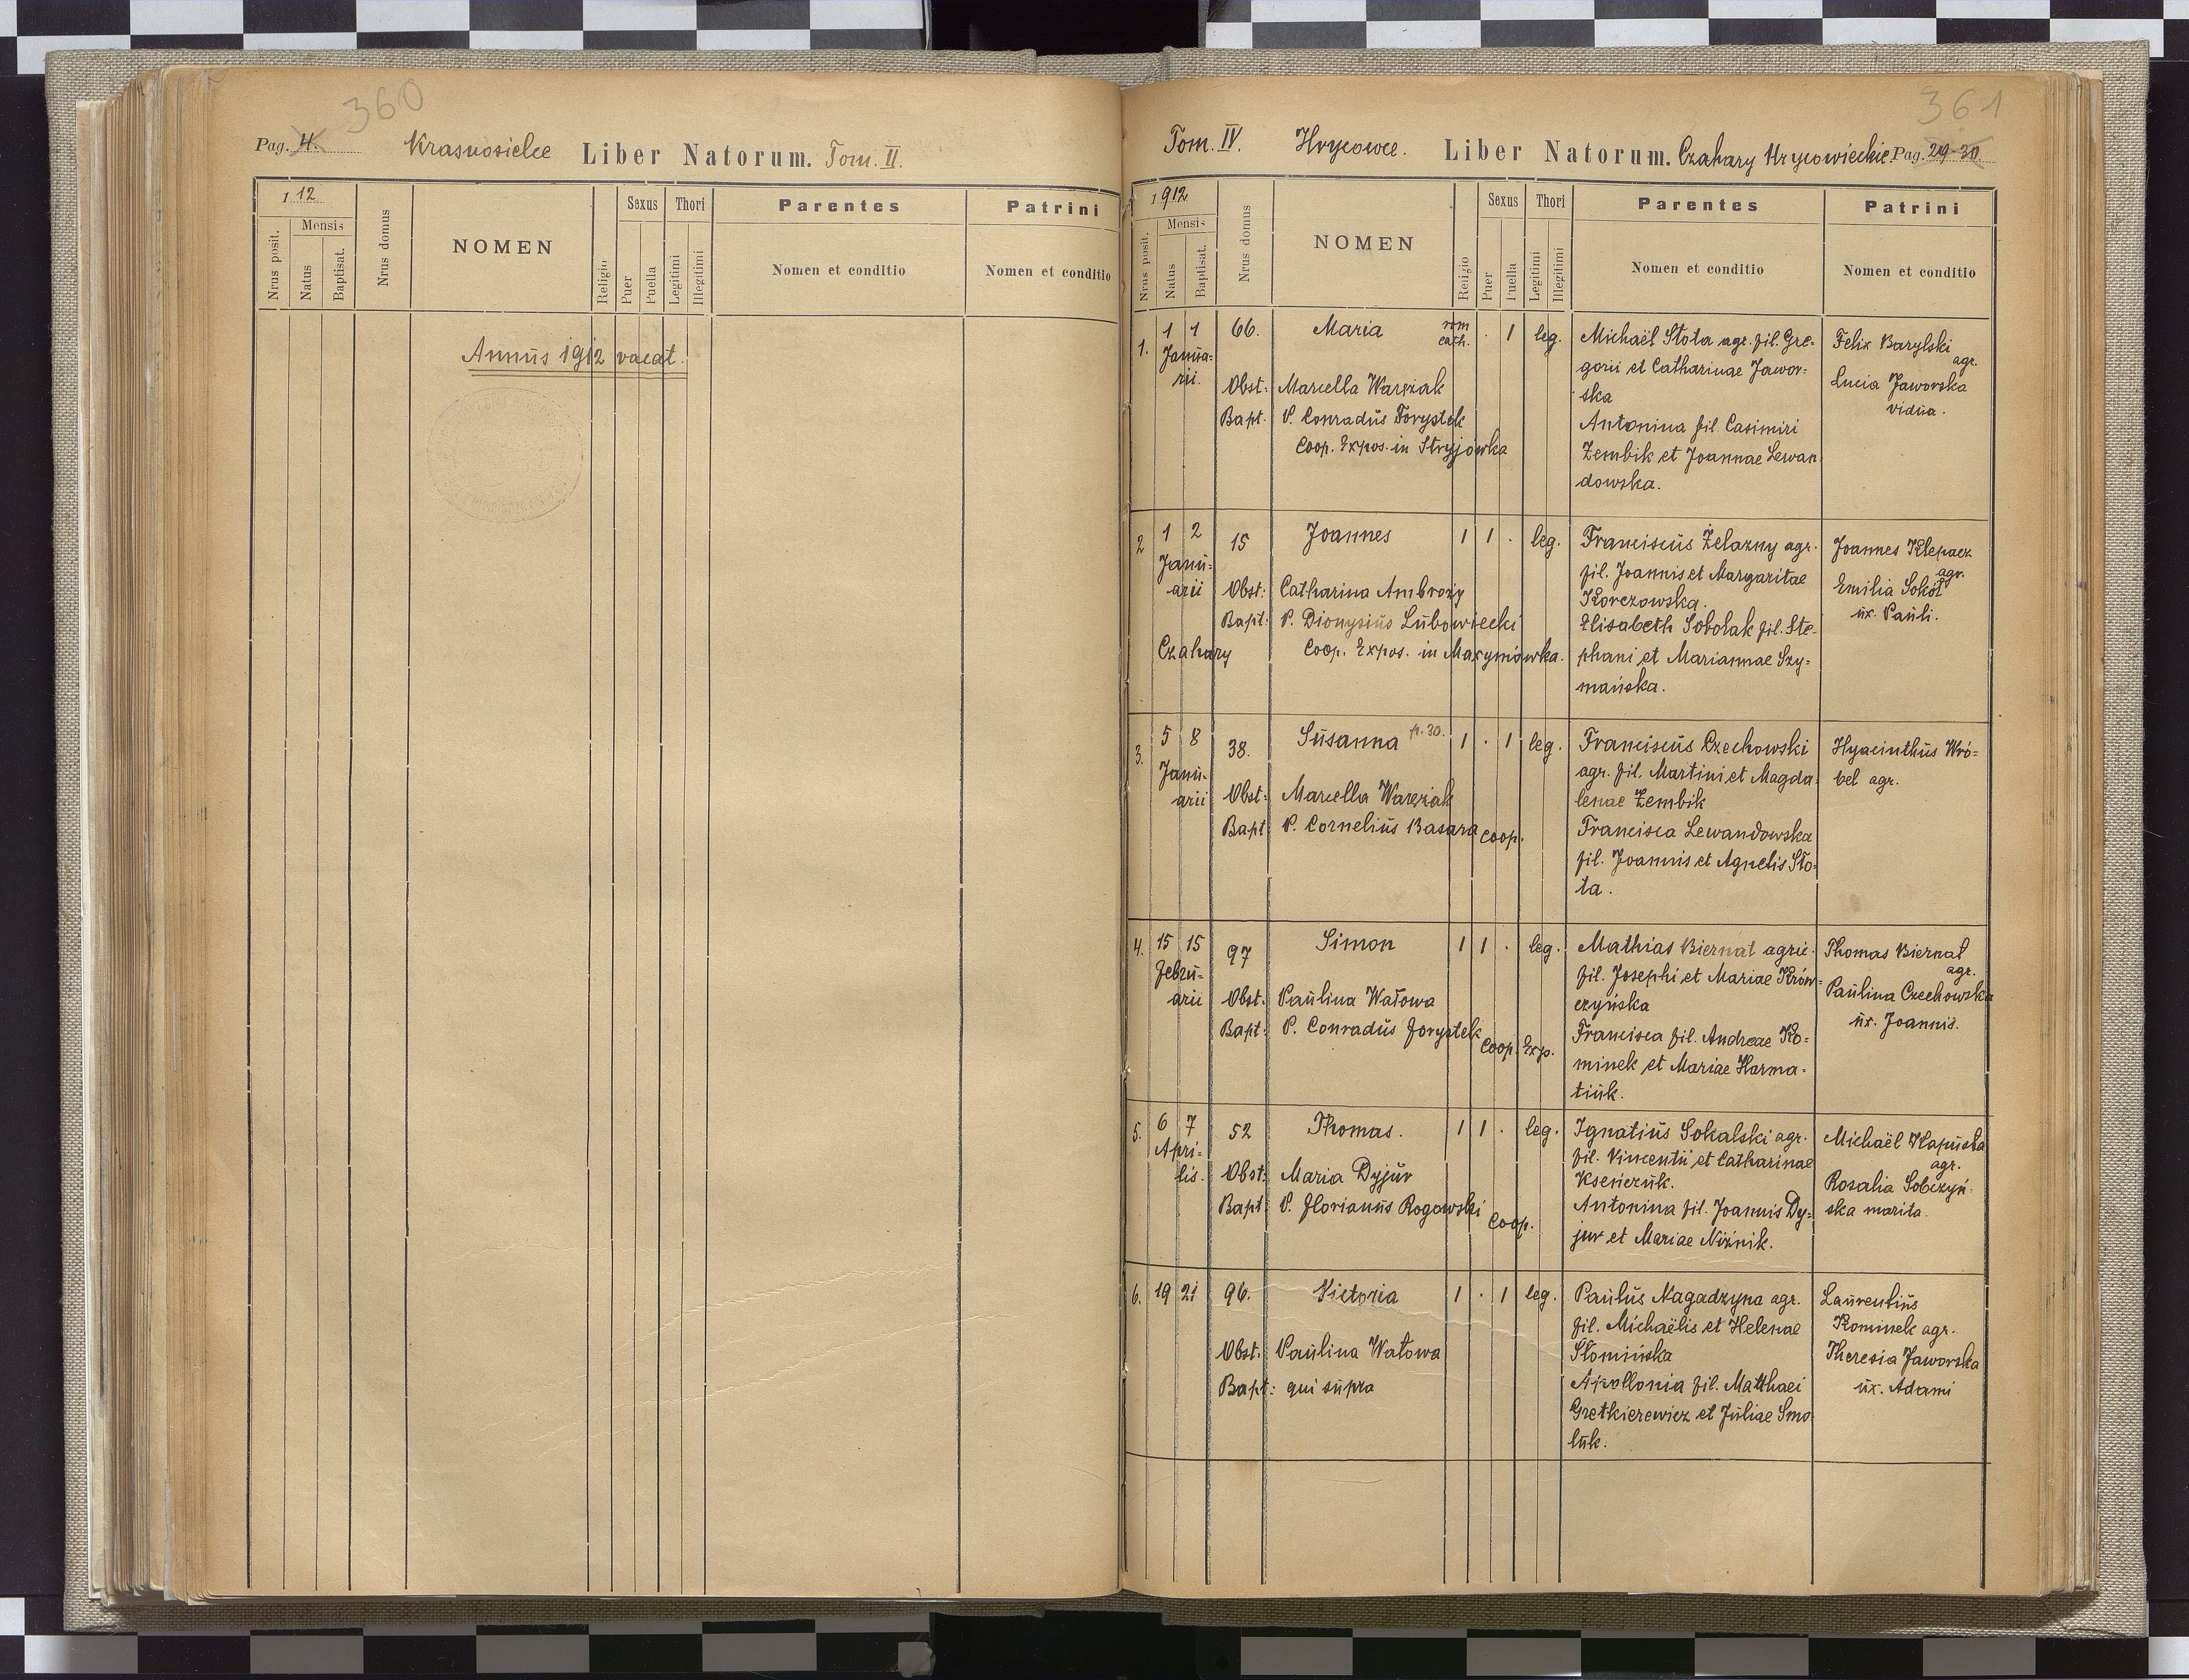 360
Pag. 4.
Krasnosielce Liber Natorum. Tom. II.
1 12
Nrus posit.
Mensis
Natus
Baptisat.
Nrus domus
NOMEN
Religio
Sexus
Puer
Puella
Thori
Legitimi
Illegitimi
Parentes
Nomen et conditio
Patrini
Nomen et conditio
Annus 1912 vacat.
361
Tom. IV. Hrycowce. Liber Natorum. Czahary Hrycowieckie Pag. 29-30.
1912
Nrus posit.
Mensis
Natus
Baptisat.
Nrus domus
NOMEN
Religio
Sexus
Puer
Puella
Thori
Legitimi
Illegitimi
Parentes
Nomen et conditio
Patrini
Nomen et conditio
1. 1 1 66. Maria rom cath. . 1 leg.
Janua-
rii.
Obst: Marcella Warężak
Bapt. P. Conradus Forystek
Coop. Expos. in Stryjówka
Michaël Stota agr. fil. Gre-
gorii et Catharinae Jawor-
ska
Antonina fil Casimiri
Zembik et Joannae Lewan
dowska.
Felix Barylski
agr.
Lucia Jaworska
vidua.
2 1 2 15 Joannes 1 1 . leg.
Janu-
arii
Obst: Catharina Ambroży
Bapt: P. Dionysius Lubowiecki
Czahary Coop. Expos. in Maxymówka.
Franciscus Żelazny agr.
fil. Joannis et Margaritae
Korczowska.
Elisabeth Sobolak fil. Ste-
phani et Mariannae Szy-
mańska.
Joannes Klepacz
agr.
Emilia Sokół
ux. Pauli.
3. 5 8 38. Susanna p. 30. 1 . 1 leg.
Janu-
arii
Obst: Marcella Warężak
Bapt: P. Cornelius Basara Coop.
Franciscus Czechowski
agr. fil. Martini et Magda
lenae Zembik
Francisca Lewandowska
fil. Joannis et Agnetis Sto-
ta.
Hyacinthus Wró-
bel agr.
4. 15 15 97 Simon 1 1 . leg.
Febru-
arii
Obst: Paulina Watowa
Bapt: P. Conradus Forystek
Coop. Exp.
Mathias Biernat agric.
fil. Josephi et Mariae Krów-
czyńska
Francisca fil. Andreae Ko-
minek et Mariae Harma-
tiuk.
Thomas Biernat
agr.
Paulina Czechowska
ux. Joannis.
5. 6 7 52 Thomas. 1 1 . leg.
Apri-
lis.
Obst: Maria Dyjur
Bapt: P. Florianus Rogowski
Coop.
Ignatius Sokalski agr.
fil. Vincentii et Catharinae
Kseńczuk.
Antonina fil. Joannis Dy-
jur et Mariae Niżnik.
Michaël Kapusta
agr.
Rosalia Sobczyń-
ska marita.
6. 19 21 96. Victoria 1 . 1 leg.
Obst: Paulina Watowa
Bapt: qui supra
Paulus Magadzyna agr.
fil. Michaëlis et Helenae
Słomińska
Apollonia fil. Matthaei
Gretkierewicz et Juliae Smo
luk.
Laurentius
Kominek agr.
Theresia Jaworska
ux. Adami